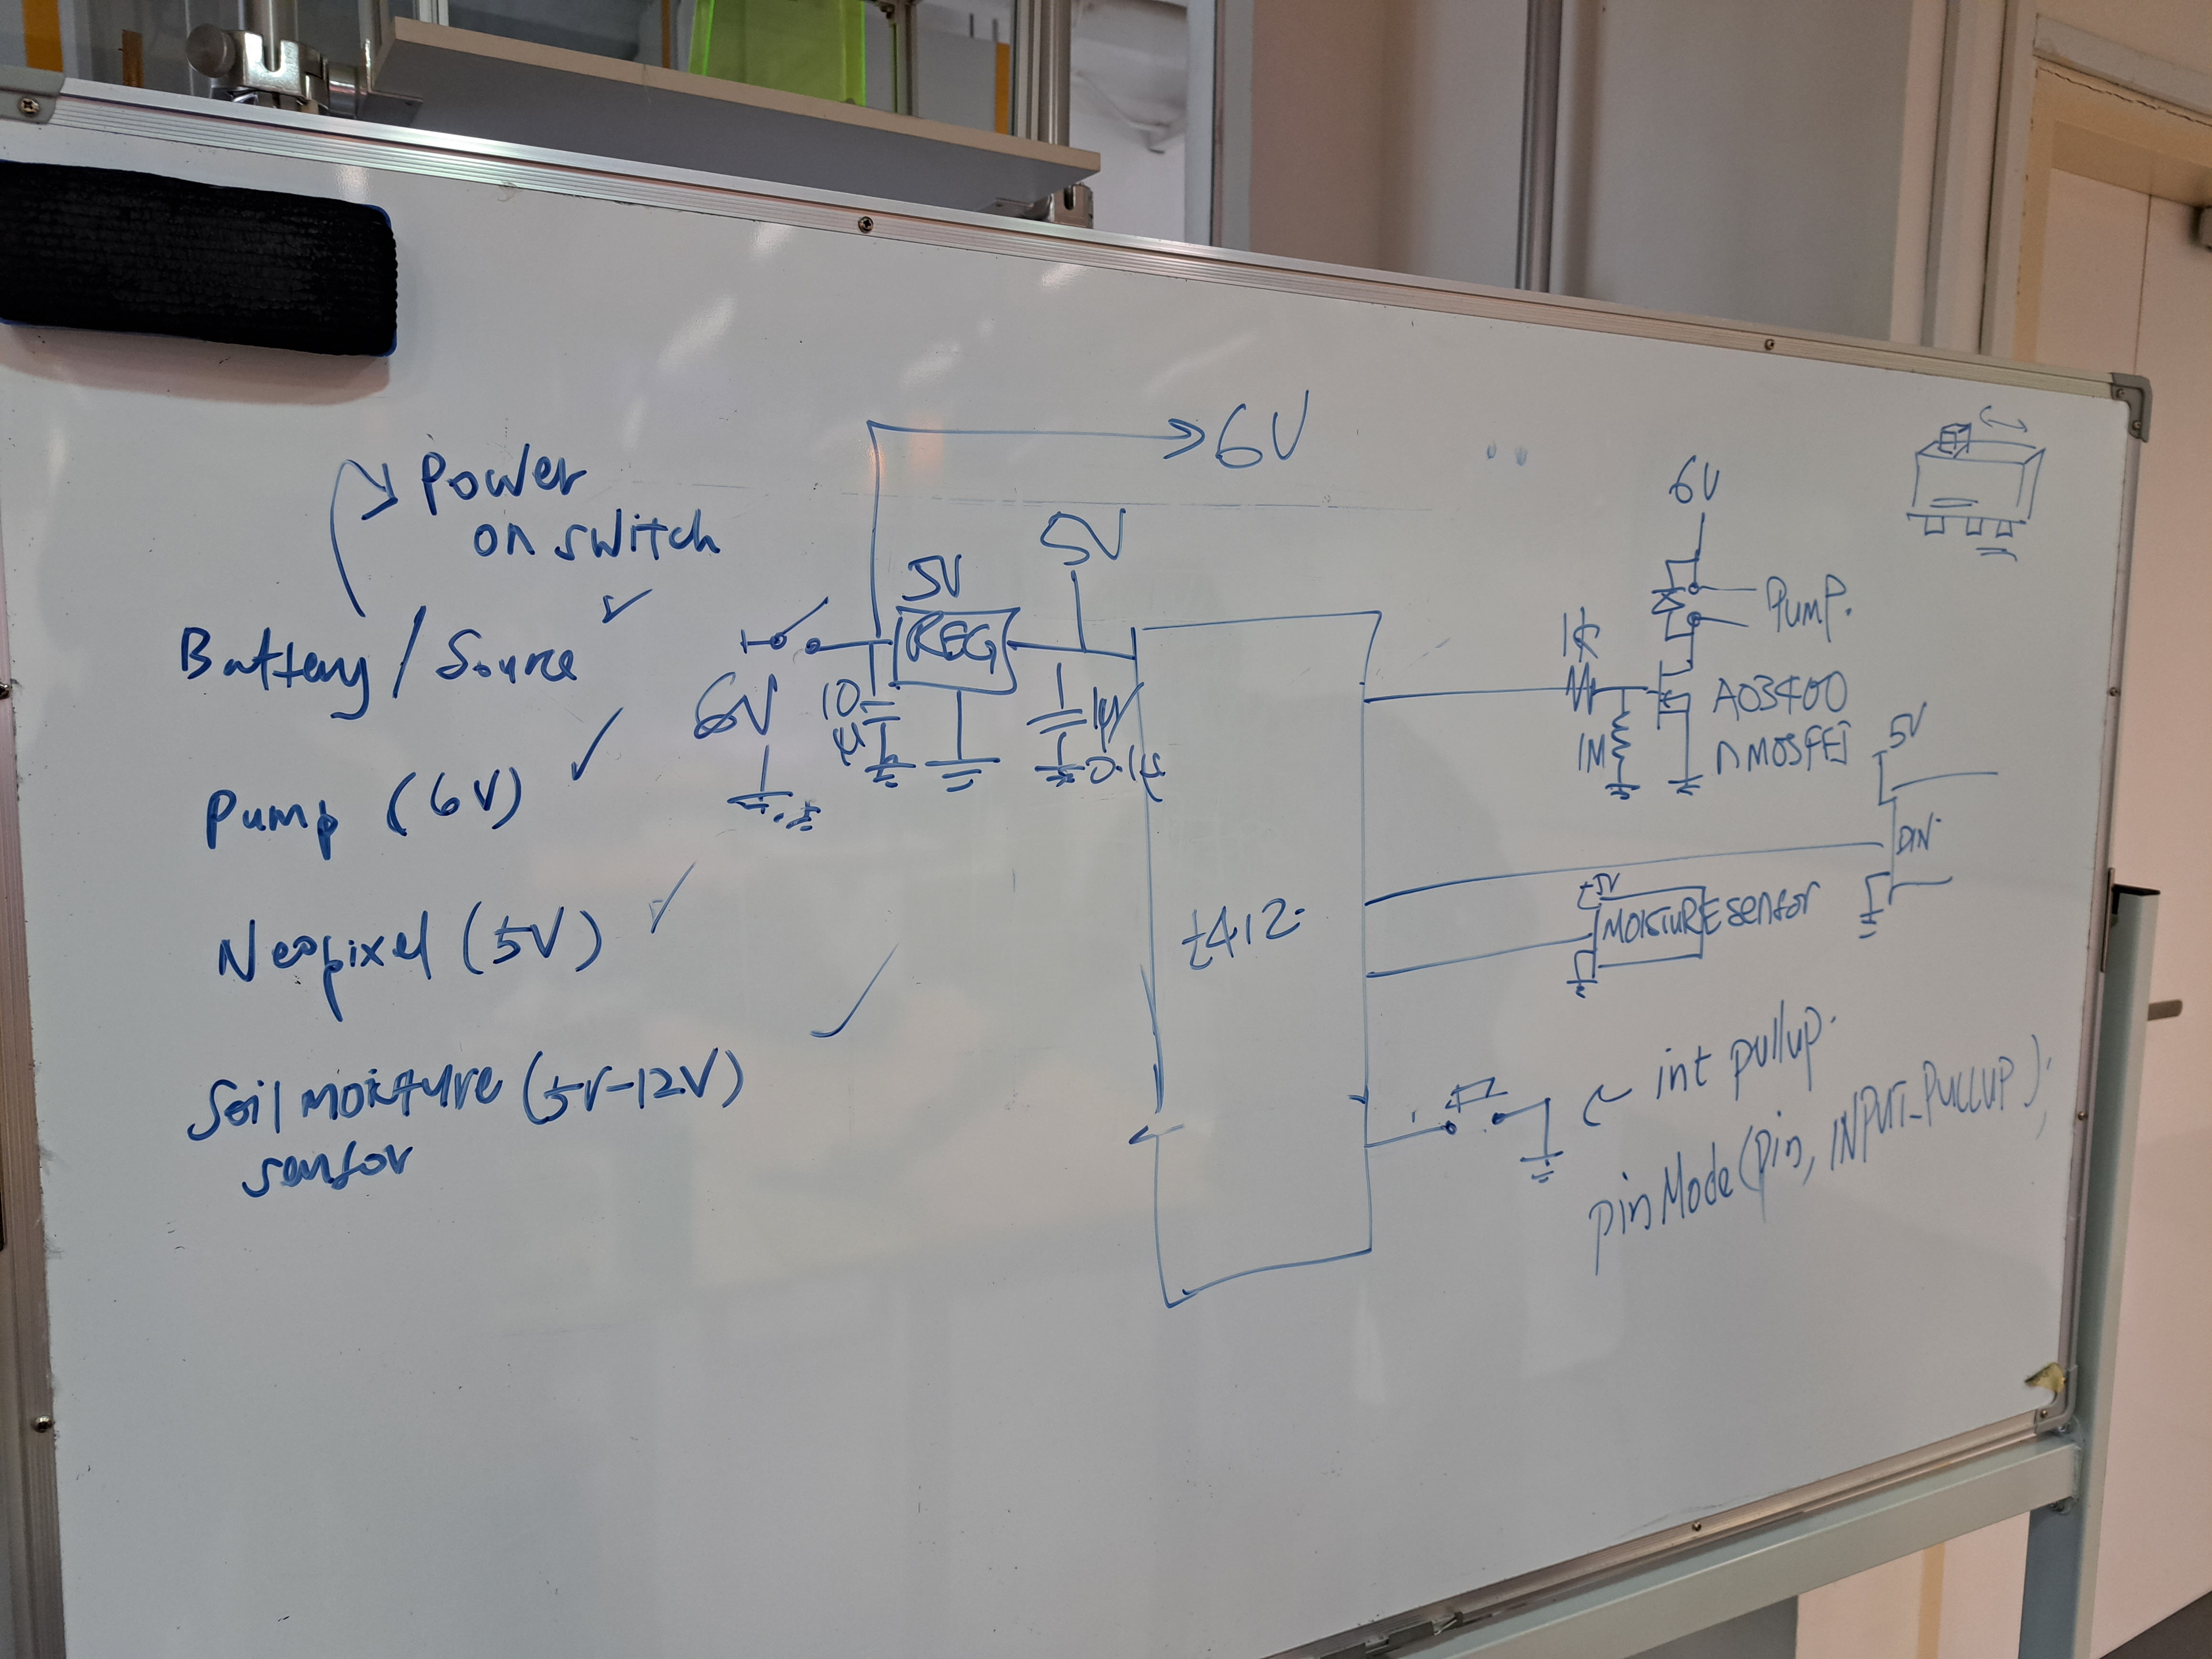 Power
on switch
Battery / Source
Pump (6V)
Neopixel (5V)
Soil moisture (5V-12V)
sensor
6V
5V
5V
REG
6V
10
µ
1µ
0.1µ
t412
6V
Pump.
1K
1M
AO3400
nMOSFET
5V
DIN
5V
MOISTURE sensor
int pullup.
pinMode(pin, INPUT_PULLUP);